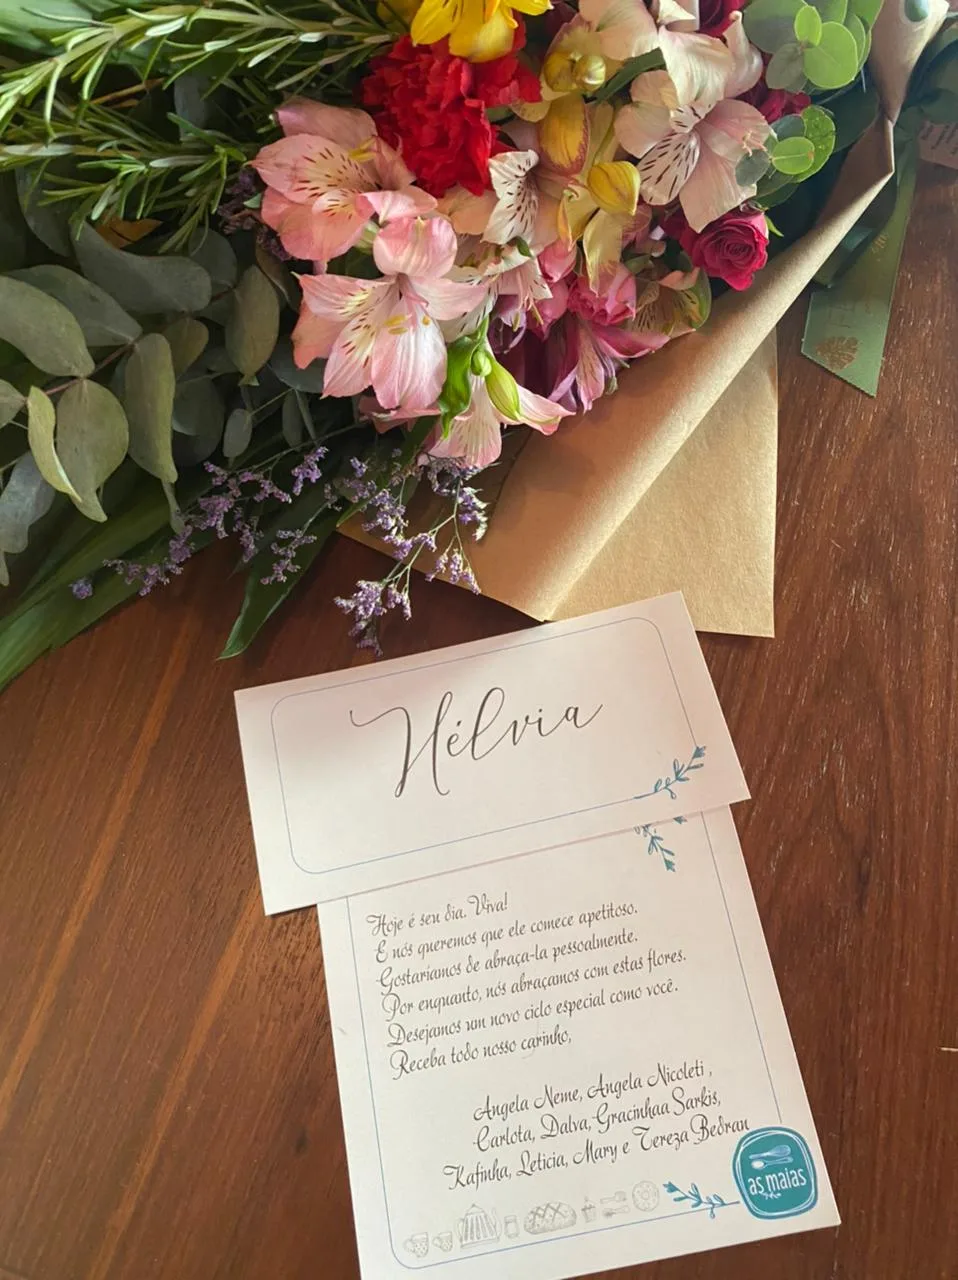 Hélvia
Hoje é seu dia. Viva!
E nós queremos que ele comece apetitoso.
Gostaríamos de abraça-la pessoalmente.
Por enquanto, nós abraçamos com estas flores.
Desejamos um novo ciclo especial como você.
Receba todo nosso carinho,
Angela Neme, Angela Nicoleti ,
Carlota, Dalva, Gracinhaa Sarkis,
Kafinha, Leticia, Mary e Tereza Bedran
as maias